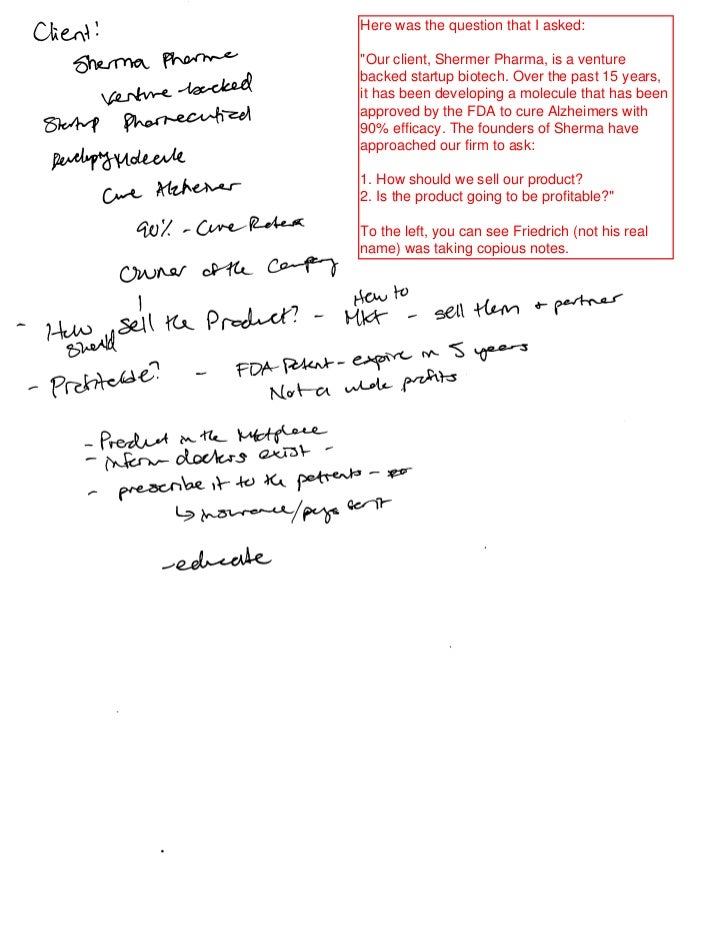 Client:
Sherma Pharma
venture-backed
Startup Pharmaceutical
Developing Molecule
Cure Alzheimer
90% - Cure Rate
Owner of the Company
- How should sell the Product? - How to Mkt - sell them + partner
- Profitable? - FDA Patent - expire in 5 years
Not a whole profits
- Product in the Mktplace
- inform doctors exist -
- prescribe it to the patients -
↳ insurance/pays for it
- educate
Here was the question that I asked:
"Our client, Shermer Pharma, is a venture
backed startup biotech. Over the past 15 years,
it has been developing a molecule that has been
approved by the FDA to cure Alzheimers with
90% efficacy. The founders of Sherma have
approached our firm to ask:
1. How should we sell our product?
2. Is the product going to be profitable?"
To the left, you can see Friedrich (not his real
name) was taking copious notes.